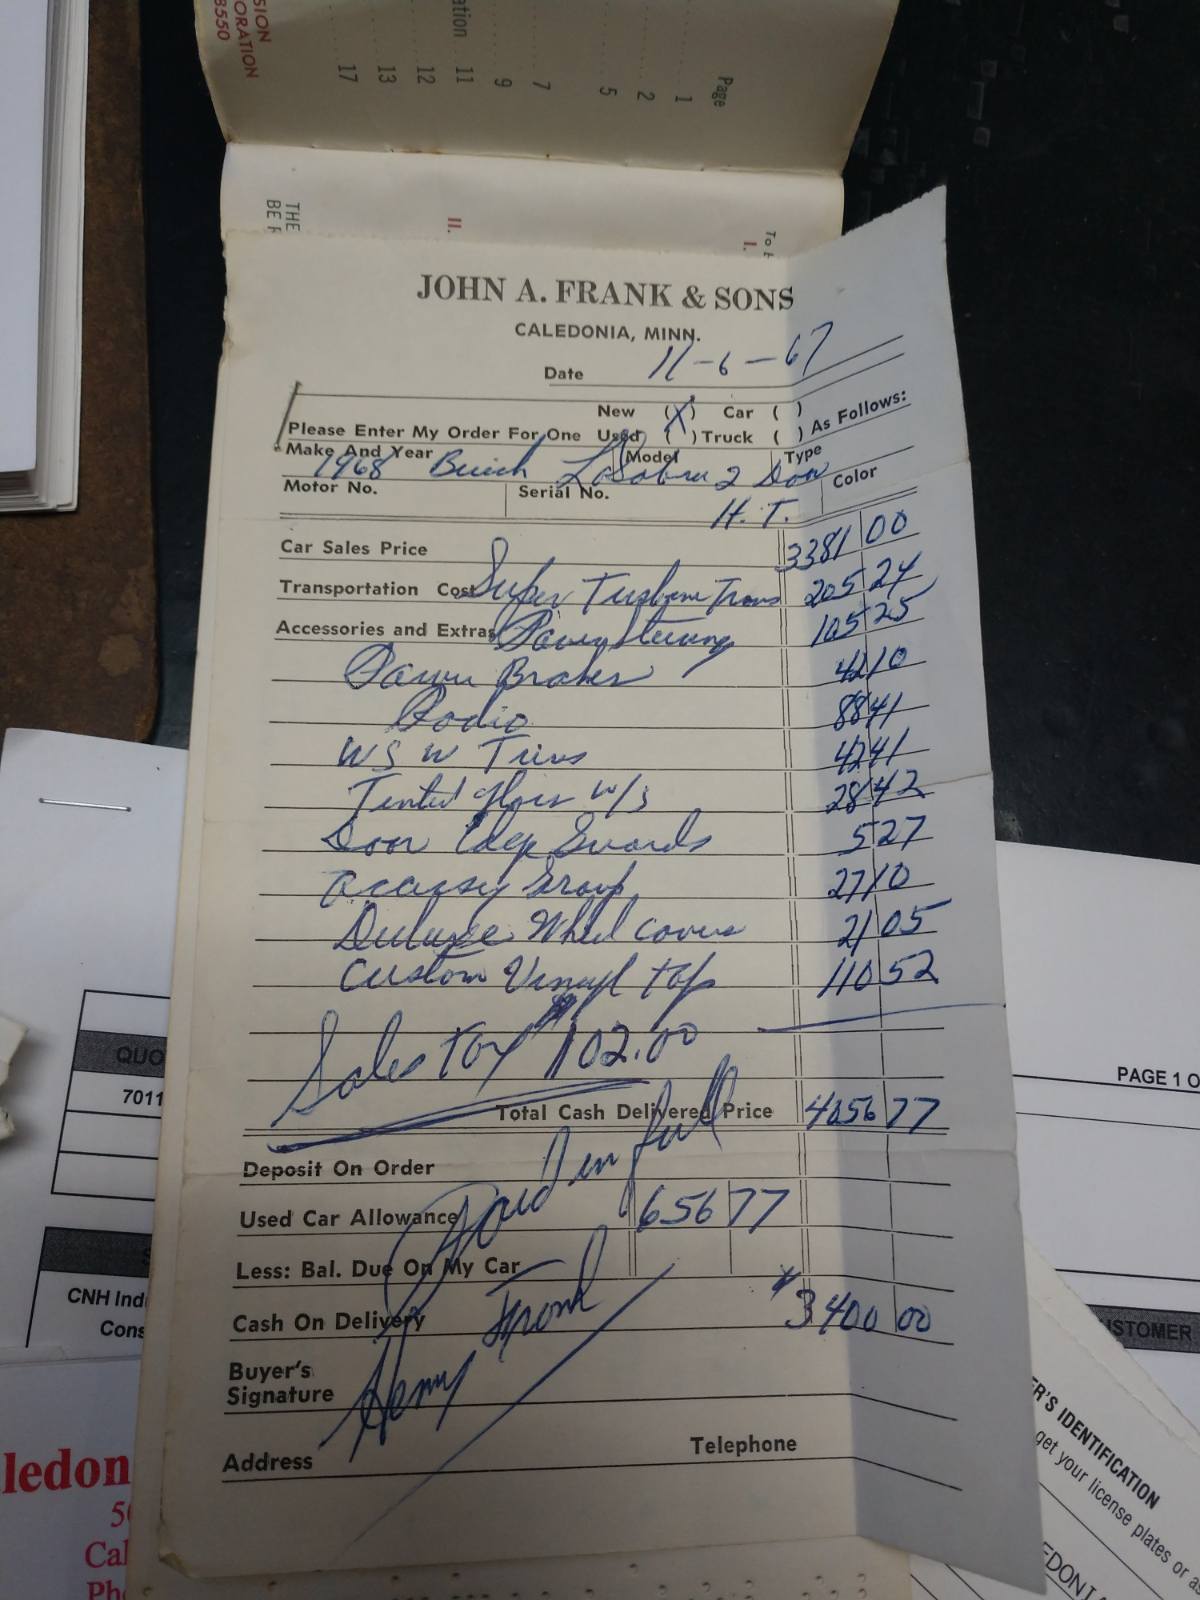 SION
ORATION
8550
ation
Page
1
2
5
7
9
11
12
13
17
THE
BE
II.
I.
JOHN A. FRANK & SONS
CALEDONIA, MINN.
Date 11-6-67
New (X) Car ( )
Please Enter My Order For One Used ( ) Truck ( ) As Follows:
Make And Year Model Type Color
1968 Buick LaSabre 2 Door
Motor No. Serial No. H.T.
Car Sales Price 3381 00
Transportation Cost Super Turbine Trans 205 24
Accessories and Extras Power Steering 105 25
Power Brakes 42 10
Radio 88 41
WSW Tires 42 41
Tinted glass w/s 28 42
Door Edge Guards 5 27
Accessy Group 27 10
Deluxe Wheel covers 21 05
Custom Vinyl top 110 52
Sales tax 102.00
Total Cash Delivered Price 4056 77
Paid in full
Deposit On Order
Used Car Allowance 656 77
Less: Bal. Due On My Car
Cash On Delivery $3400 00
Henry Frank
Buyer's
Signature
Address Telephone
QUO
7011
CNH Ind
Cons
ledon
Cal
Ph
PAGE 1 O
USTOMER
ER'S IDENTIFICATION
get your license plates or as
EDONIA